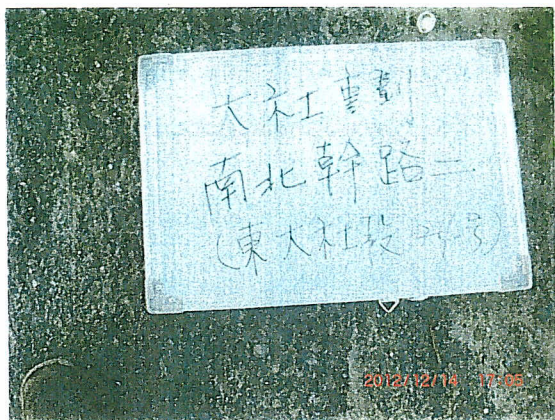 大社重劃
南北幹路二
(東大社段 号)
2012/12/14 17:05